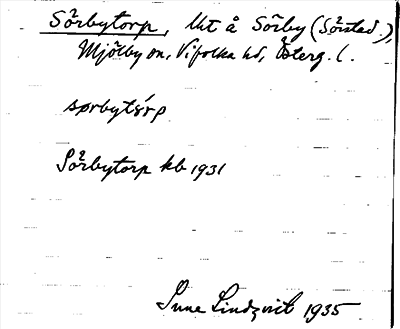 Sörbytorp, lht å Sörby (Sörstad.),
Mjölby sn, Vifolka hd, Österg. l.
sørbytórp
Sörbytorp kb 1931
Sune Lindqvist 1935